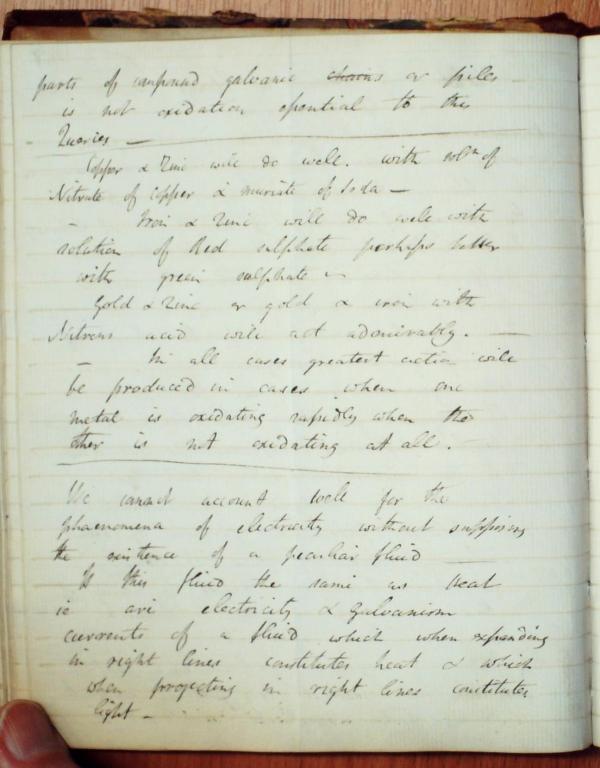 parts of compound galvanic chains or piles
is not oxidation essential to this
Queries —
Copper & Zinc will do well. with solⁿ of
Nitrate of Copper & muriate of Soda —
- Iron & Zinc will do well with
solution of Red sulphate perhaps better
with green sulphate —
Gold & Zinc or gold & iron with
Nitrous acid will act admirably. —
- In all cases greatest action will
be produced in cases when one
metal is oxidating rapidly when the
other is not oxidating at all.
We cannot account well for the
phaenomena of electricity without supposing
the existence of a peculiar fluid —
Is this fluid the same as heat
ie are electricity & Galvanism
currents of a fluid which when expanding
in right lines constitutes heat & which
when projecting in right lines constitutes
light —